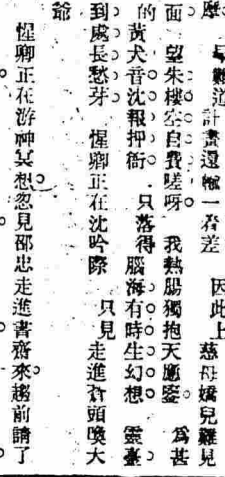 難道計畫還一着差 因此上 慈母嬌兒難見
面 望朱樓空自費嗟呀 我熱腸獨抱天應鑒 為甚
的黃犬音沈報押衙 只落得腦海有時生幻想 靈臺
到處長愁芽 惺卿正在沈吟際 只見走進蒼頭喚大
爺
惺卿正在游神冥想忽見邵忠走進書齋來趨前請了